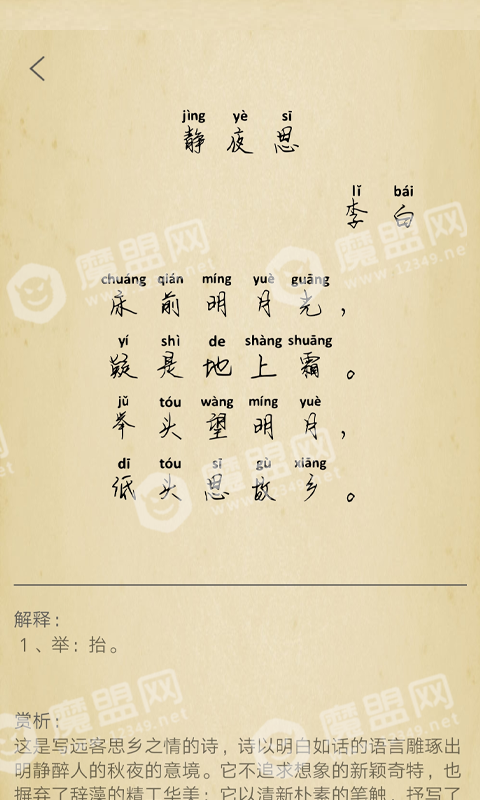 jìng yè sī
静夜思
lǐ bái
李白
chuáng qián míng yuè guāng
床前明月光，
yí shì de shàng shuāng
疑是地上霜。
jǔ tóu wàng míng yuè
举头望明月，
dī tóu sī gù xiāng
低头思故乡。
解释：
1、举：抬。
赏析：
这是写远客思乡之情的诗，诗以明白如话的语言雕琢出
明静醉人的秋夜的意境。它不追求想象的新颖奇特，也
摒弃了辞藻的精工华美；它以清新朴素的笔触，抒写了
魔盟网
www.12349.net